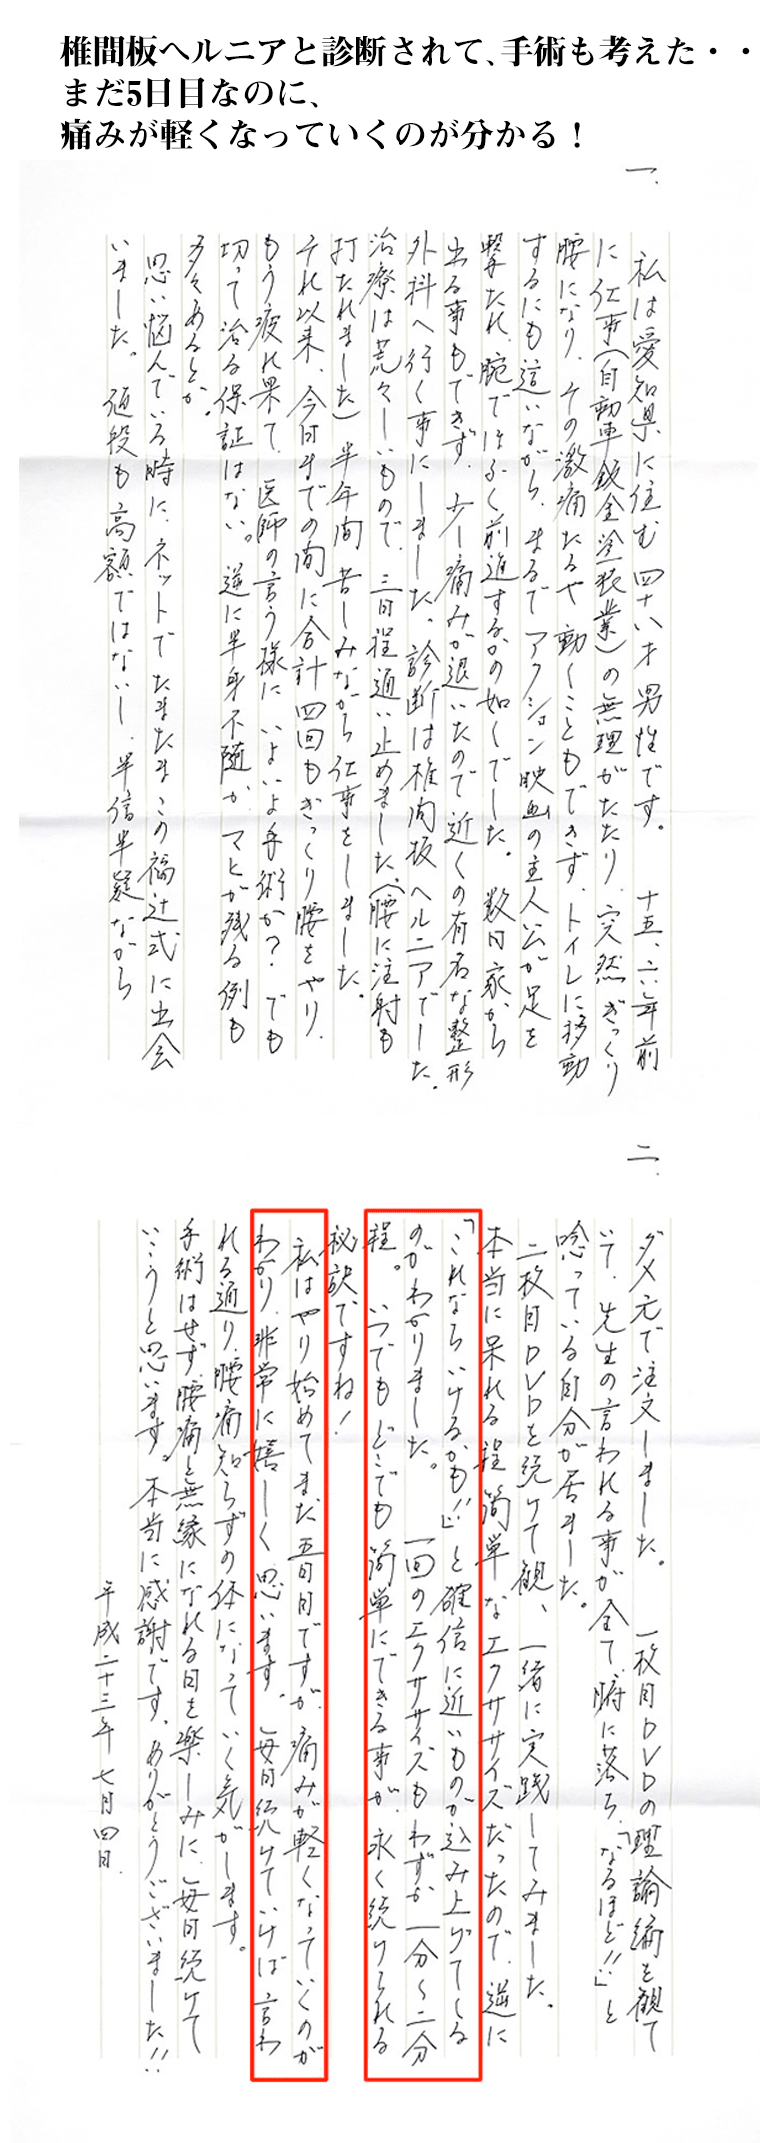 椎間板ヘルニアと診断されて､手術も考えた・・
まだ5日目なのに、
痛みが軽くなっていくのが分かる！
一.
私は愛知県に住む四十八才男性です。十五、六年前
に仕事(自動車鈑金塗装業)の無理がたたり、突然ぎっくり
腰になり、その激痛たるや動くこともできず、トイレに移動
するにも這いながら、まるでアクション映画の主人公が足を
撃たれ、腕でほふく前進するかの如くでした。数日家から
出る事もできず、少し痛みが退いたので近くの有名な整形
外科へ行く事にしました。診断は椎間板ヘルニアでした。
治療は荒々しいもので、三日程通い止めました。(腰に注射も
打たれました)半年間苦しみながら仕事をしました。
それ以来、今日までの間に合計四回もぎっくり腰をやり、
もう疲れ果て、医師の言う様にいよいよ手術か？でも
切って治る保証はない。逆に半身不随か、マヒが残る例も
多々あるとか。
思い悩んでいる時に、ネットでたまたまこの福辻式に出会
いました。値段も高額ではないし、半信半疑ながら
二.
ダメ元で注文しました。一枚目DVDの理論編を観て
いて、先生の言われる事が全て腑に落ち、「なるほど!!」と
唸っている自分が居ました。
二枚目DVDを続けて観、一緒に実践してみました。
本当に呆れる程簡単なエクササイズだったので、逆に
「これならいけるかも!!」と確信に近いものが込み上げてくる
のがわかりました。一回のエクササイズもわずか一分～二分
程。いつでもどこでも簡単にできる事が、永く続けられる
秘訣ですね！
私はやり始めてまだ五日目ですが、痛みが軽くなっていくのが
わかり、非常に嬉しく思います。毎日続けていけば言わ
れる通り、腰痛知らずの体になっていく気がします。
手術はせず、腰痛と無縁になれる日を楽しみに、毎日続けて
いこうと思います。本当に感謝です。ありがとうございました!!
平成二十三年七月四日.